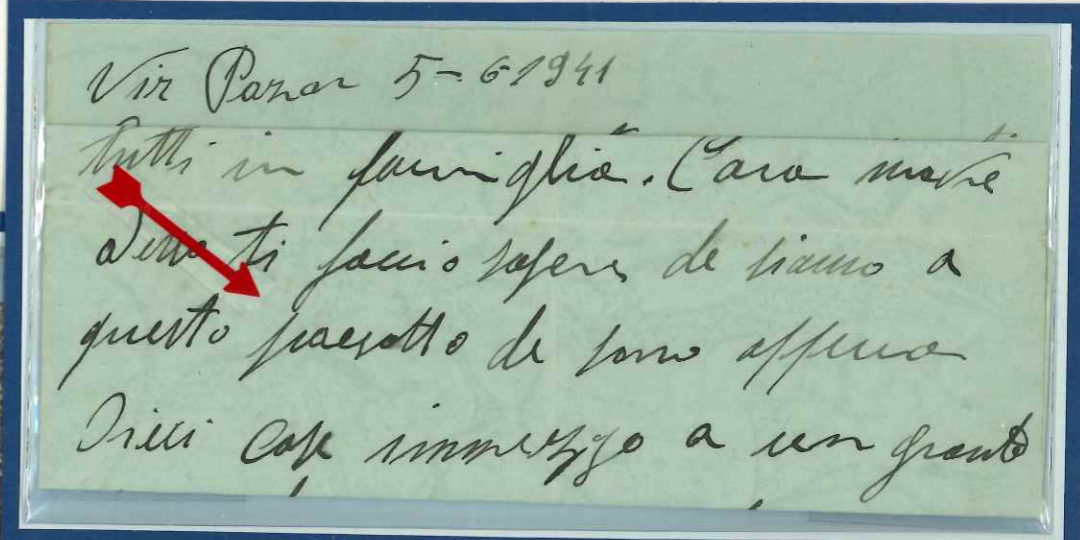 Vir Pazar 5-6 1941
tutti in famiglia. Cara madre
ti faccio sapere che siamo a
questo paesotto che sono appena
Dieci case immezzo a un grande